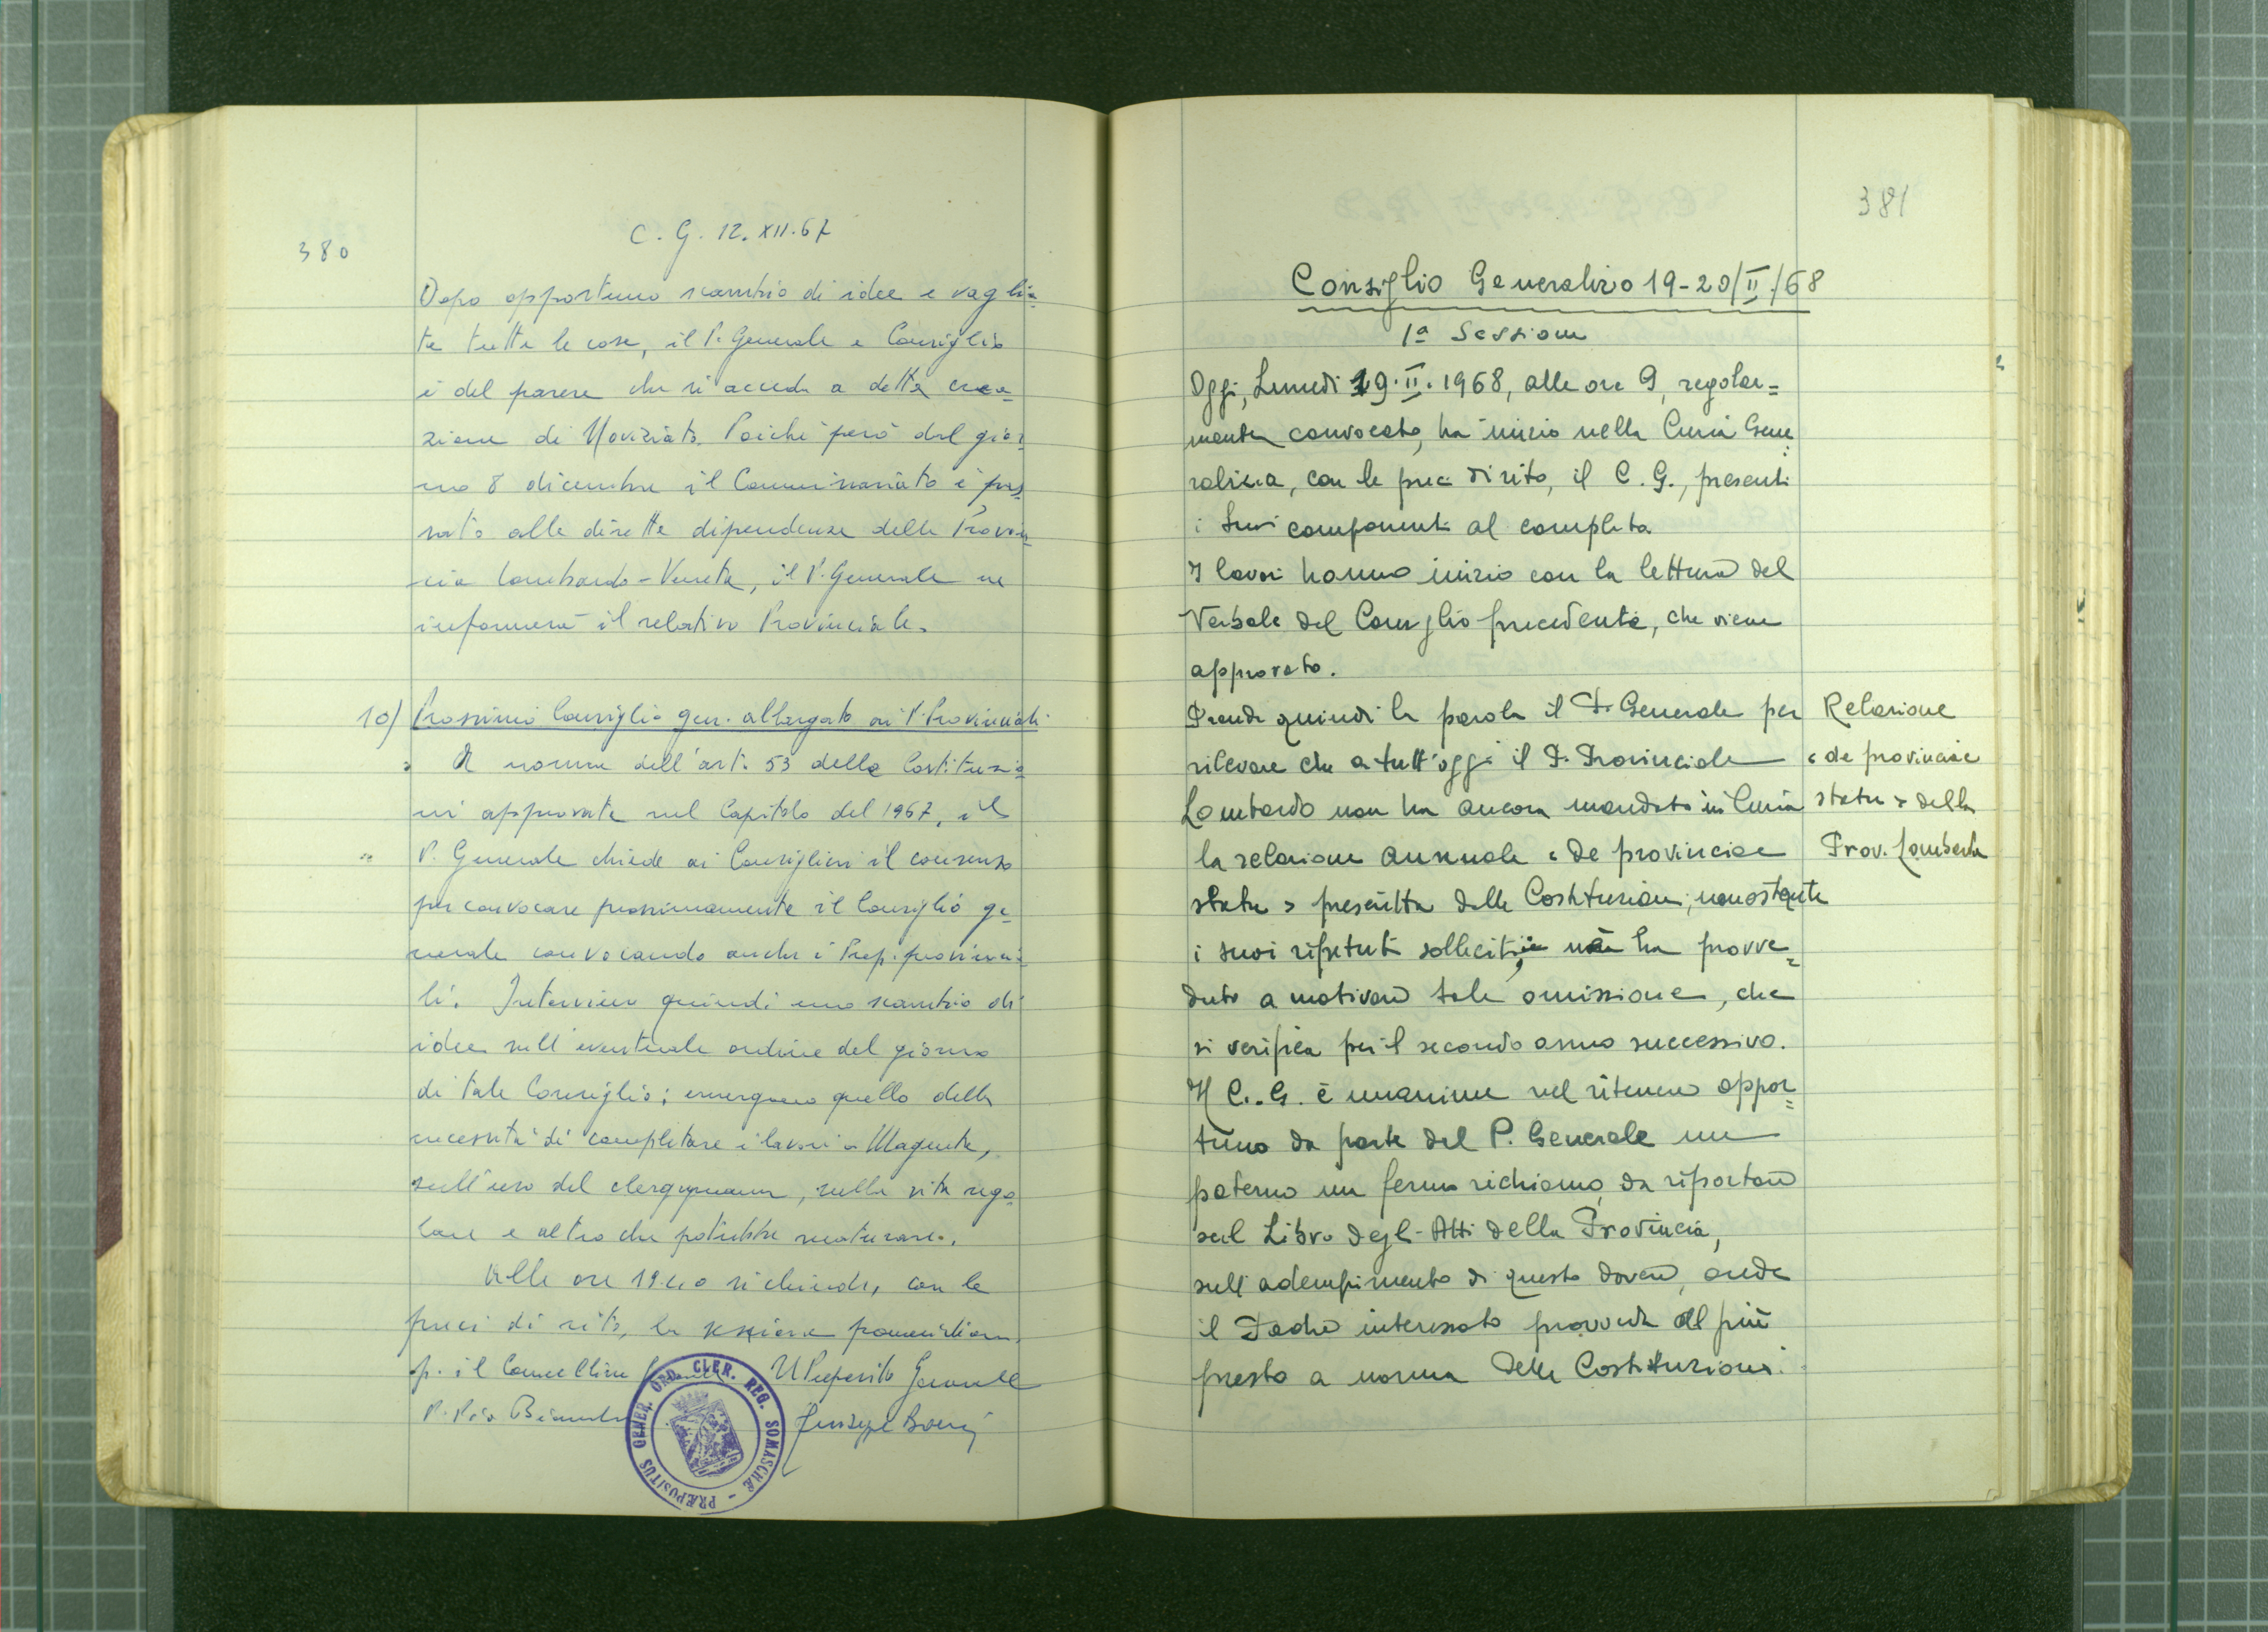 380
C. G. 12. XII. 67
Dopo opportuno scambio di idee e vaglia=
te tutte le cose, il P. Generale e Consiglio
è del parere che si acceda a detta crea=
zione di Noviziato. Poiché però dal gior=
no 8 dicembre il Commissariato è pas=
sato alle dirette dipendenze della Provin=
cia Lombardo-Veneta, il P. Generale ne
informerà il relativo Provinciale.
10) Prossimo Consiglio gen. allargato ai P. Provinciali.
A norma dell'art. 53 delle Costituzio=
ni approvate nel Capitolo del 1967, il
P. Generale chiede ai Consiglieri il consenso
per convocare prossimamente il Consiglio ge=
nerale convocando anche i Prep. provincia=
li. Interviene quindi uno scambio di
idee sull'eventuale ordine del giorno
di tale Consiglio; emergono quello della
necessità di completare i lavori a Magenta,
sull'uso del clergyman, sulla vita rego=
lare e altro che potrebbe maturare.
Alle ore 19.40 si chiude, con le
preci di rito, la sessione pomeridiana.
p. il Cancelliere Il Preposito Generale
P. Pio Bianchi Giuseppe Boeris
PRÆPOSITUS GENER. ORD. CLER. REG. SOMASCHÆ
381
Consiglio Generalizio 19-20/II/68
1ª Sessione
Oggi, Lunedì 19.II.1968, alle ore 9, regolar=
mente convocato, ha inizio nella Curia Gene=
ralizia, con le preci di rito, il C. G., presenti
i suoi componenti al completo.
I lavori hanno inizio con la lettura del
Verbale del Consiglio precedente, che viene
approvato.
Prende quindi la parola il P. Generale per
rilevare che a tutt'oggi il P. Provinciale
Lombardo non ha ancora mandato in Curia
la relazione annuale « de provinciae
statu » prescritta dalle Costituzioni; nonostante
i suoi ripetuti solleciti, non ha provve=
duto a motivare tale omissione, che
si verifica per il secondo anno successivo.
Il C. G. è unanime nel ritenere oppor=
tuno da parte del P. Generale un
paterno ma fermo richiamo, da riportare
sul Libro degli Atti della Provincia,
sull'adempimento di questo dovere, onde
il Padre interessato provveda al più
presto a norma delle Costituzioni.
Relazione
« de provinciae
statu » della
Prov. Lombarda